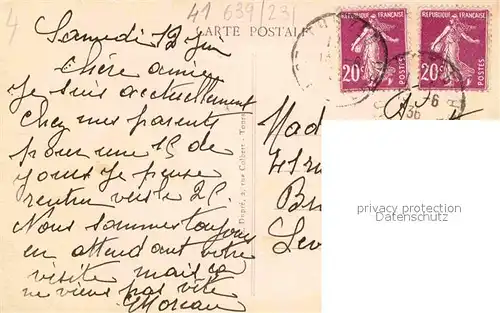 41 639/23
4
CARTE POSTALE
REPUBLIQUE FRANÇAISE
20c
POSTES
REPUBLIQUE FRANÇAISE
20c
POSTES
-6
36
Samedi 12 Juin
Chère amie,
Je suis acctuellement
chez mes parents
pour une 15 de
jours je pense
rentrer vers le 25.
Nous sommes toujours
en attendant votre
visite mais ça
ne viens pas vite
Moreau
rue Colbert - Tours
Mad
41 ru
Br
Lev
privacy protection
Datenschutz